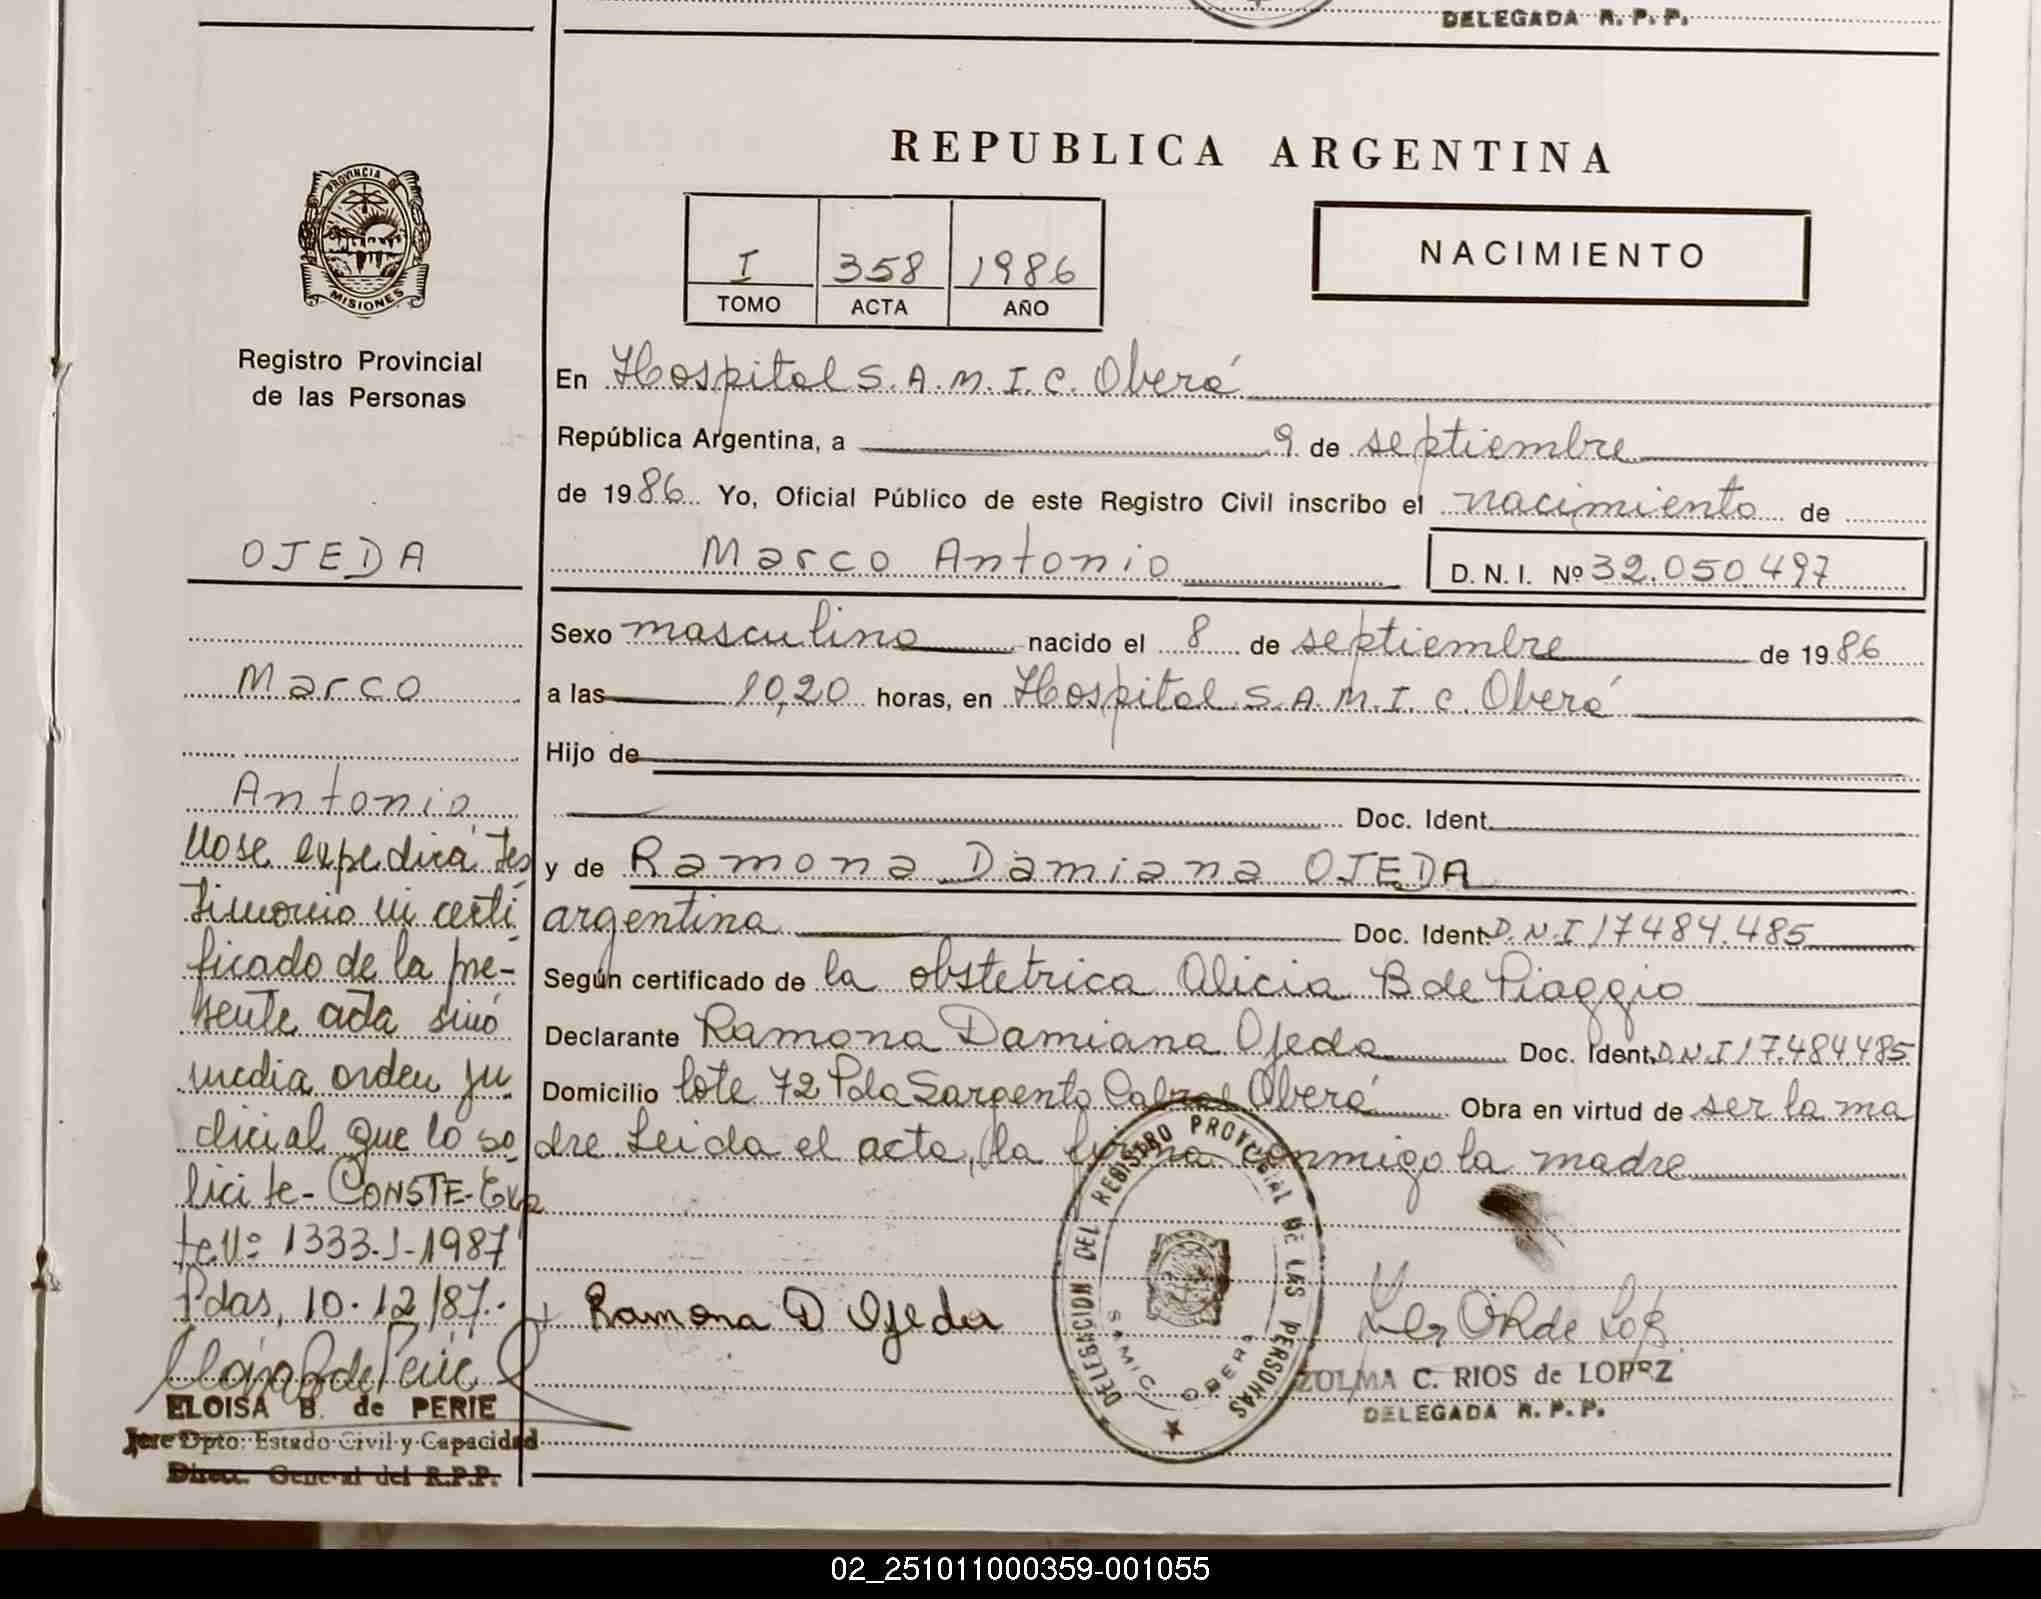 DELEGADA R. P. P.
REPUBLICA ARGENTINA
PROVINCIA DE
MISIONES
I 358 1986
TOMO ACTA AÑO
NACIMIENTO
Registro Provincial
de las Personas
En Hospital S.A.M.I.C. Oberá
República Argentina, a 9 de septiembre
de 1986 Yo, Oficial Público de este Registro Civil inscribo el nacimiento de
OJEDA
Marco Antonio D. N. I. Nº 32.050.497
Sexo masculino nacido el 8 de septiembre de 1986
Marco
a las 10,20 horas, en Hospital S.A.M.I.C. Oberá
Hijo de
Antonio
Doc. Ident.
y de Ramona Damiana OJEDA
argentina Doc. Ident. D.N.I 17484.485
Según certificado de la obstetrica Alicia B de Piaggio
Declarante Ramona Damiana Ojeda Doc. Ident. D.N.I 17.484485
Domicilio lote 72 Pda Sargento Cabral Oberá Obra en virtud de ser la ma
dre. Leida el acta, la firma conmigo la madre
No se expedirá tes
timonio ni certi
ficado de la pre-
sente acta sinó
media orden ju
dicial que lo so
licite- CONSTE- Exp
te Nº 1333-J-1987
Pdas, 10-12/87.-
ELOISA B. de PERIE
Jefe Dpto. Estado Civil y Capacidad
Direc. General del R.P.P.
Ramona D Ojeda
DELEGACION DEL REGISTRO PROVINCIAL DE LAS PERSONAS
SAMIC OBERA
ZULMA C. RIOS de LOPEZ
DELEGADA R. P. P.
02_251011000359-001055